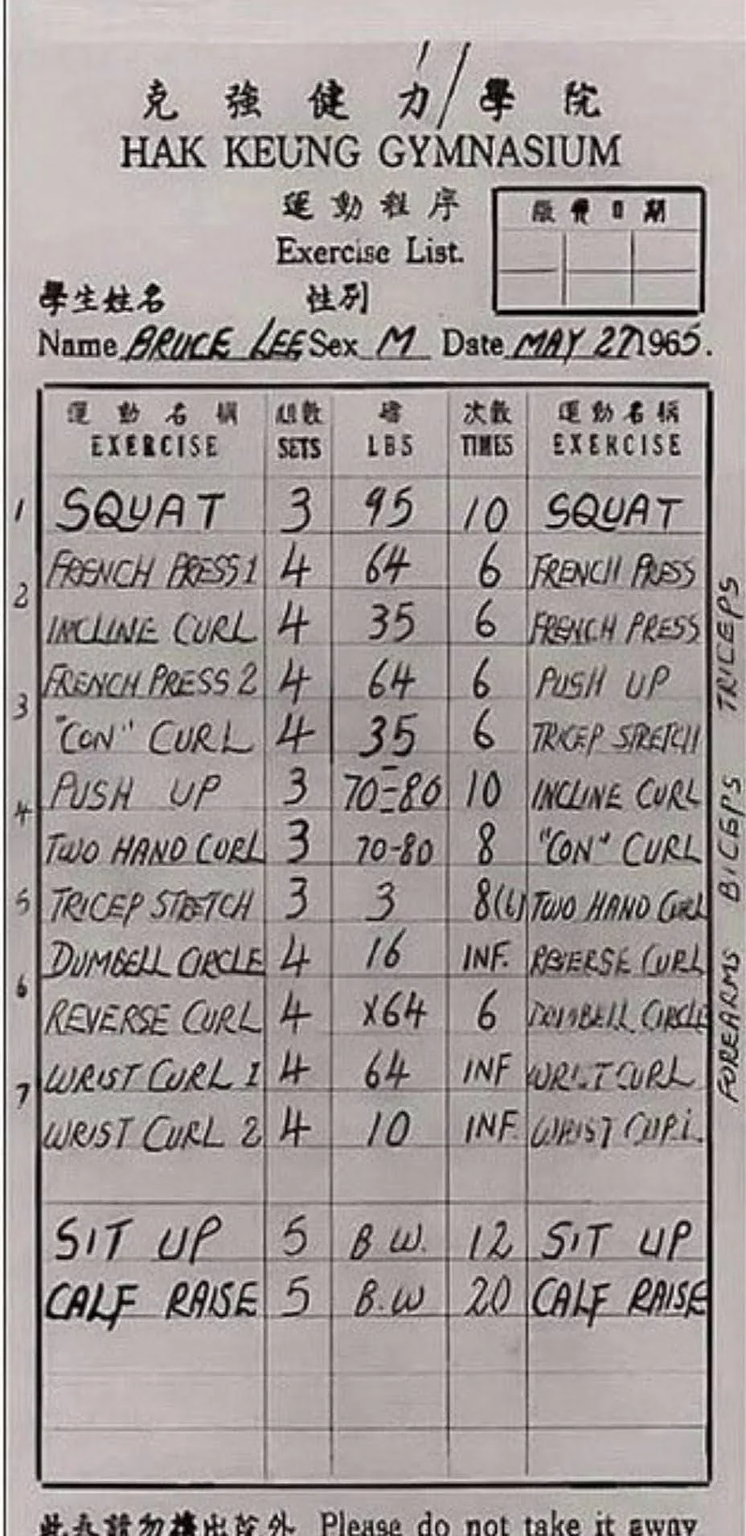 克強健力學院
HAK KEUNG GYMNASIUM
運動程序
Exercise List.
繳費日期
學生姓名 性別
Name BRUCE LEE Sex M Date MAY 27 1965.
運動名稱 組數 磅 次數 運動名稱
EXERCISE SETS LBS TIMES EXERCISE
1 SQUAT 3 95 10 SQUAT
FRENCH PRESS 1 4 64 6 FRENCH PRESS
2
INCLINE CURL 4 35 6 FRENCH PRESS
FRENCH PRESS 2 4 64 6 PUSH UP
3
"CON" CURL 4 35 6 TRICEP STRETCH
PUSH UP 3 70-80 10 INCLINE CURL
4
TWO HAND CURL 3 70-80 8 "CON" CURL
5 TRICEP STRETCH 3 3 8(6) TWO HAND CURL
DUMBELL CIRCLE 4 16 INF. REVERSE CURL
6
REVERSE CURL 4 X64 6 DUMBELL CIRCLE
WRIST CURL 1 4 64 INF WRIST CURL
7
WRIST CURL 2 4 10 INF. WRIST CURL
SIT UP 5 B.W. 12 SIT UP
CALF RAISE 5 B.W 20 CALF RAISE
TRICEPS
BICEPS
FOREARMS
Please do not take it awny